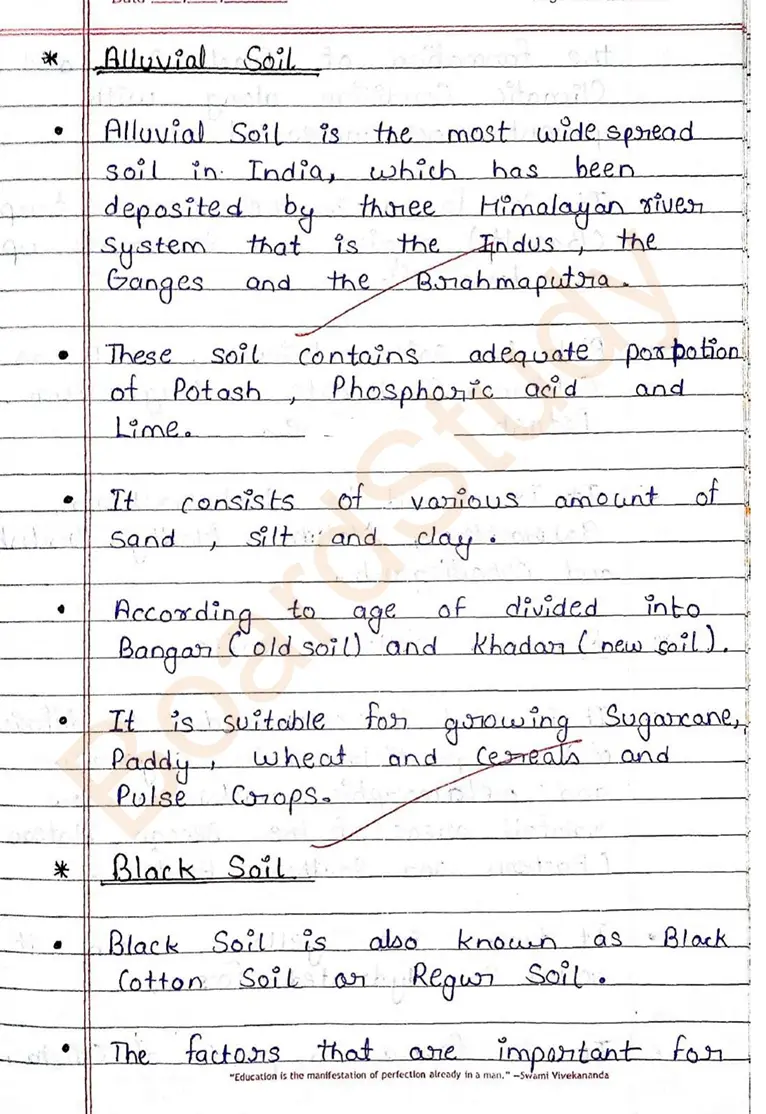 * Alluvial Soil
• Alluvial Soil is the most wide spread
soil in India, which has been
deposited by three Himalayan river
System that is the Indus, the
Ganges and the Brahmaputra.
• These soil contains adequate porpotion
of Potash, Phosphoric acid and
Lime.
• It consists of various amount of
sand, silt and clay.
• According to age of divided into
Bangar (old soil) and Khadar (new soil).
• It is suitable for growing Sugarcane,
Paddy, Wheat and Cereals and
Pulse Crops.
* Black Soil
• Black Soil is also known as Black
Cotton Soil or Regur Soil.
• The factors that are important for
"Education is the manifestation of perfection already in a man." –Swami Vivekananda
BoardStudy